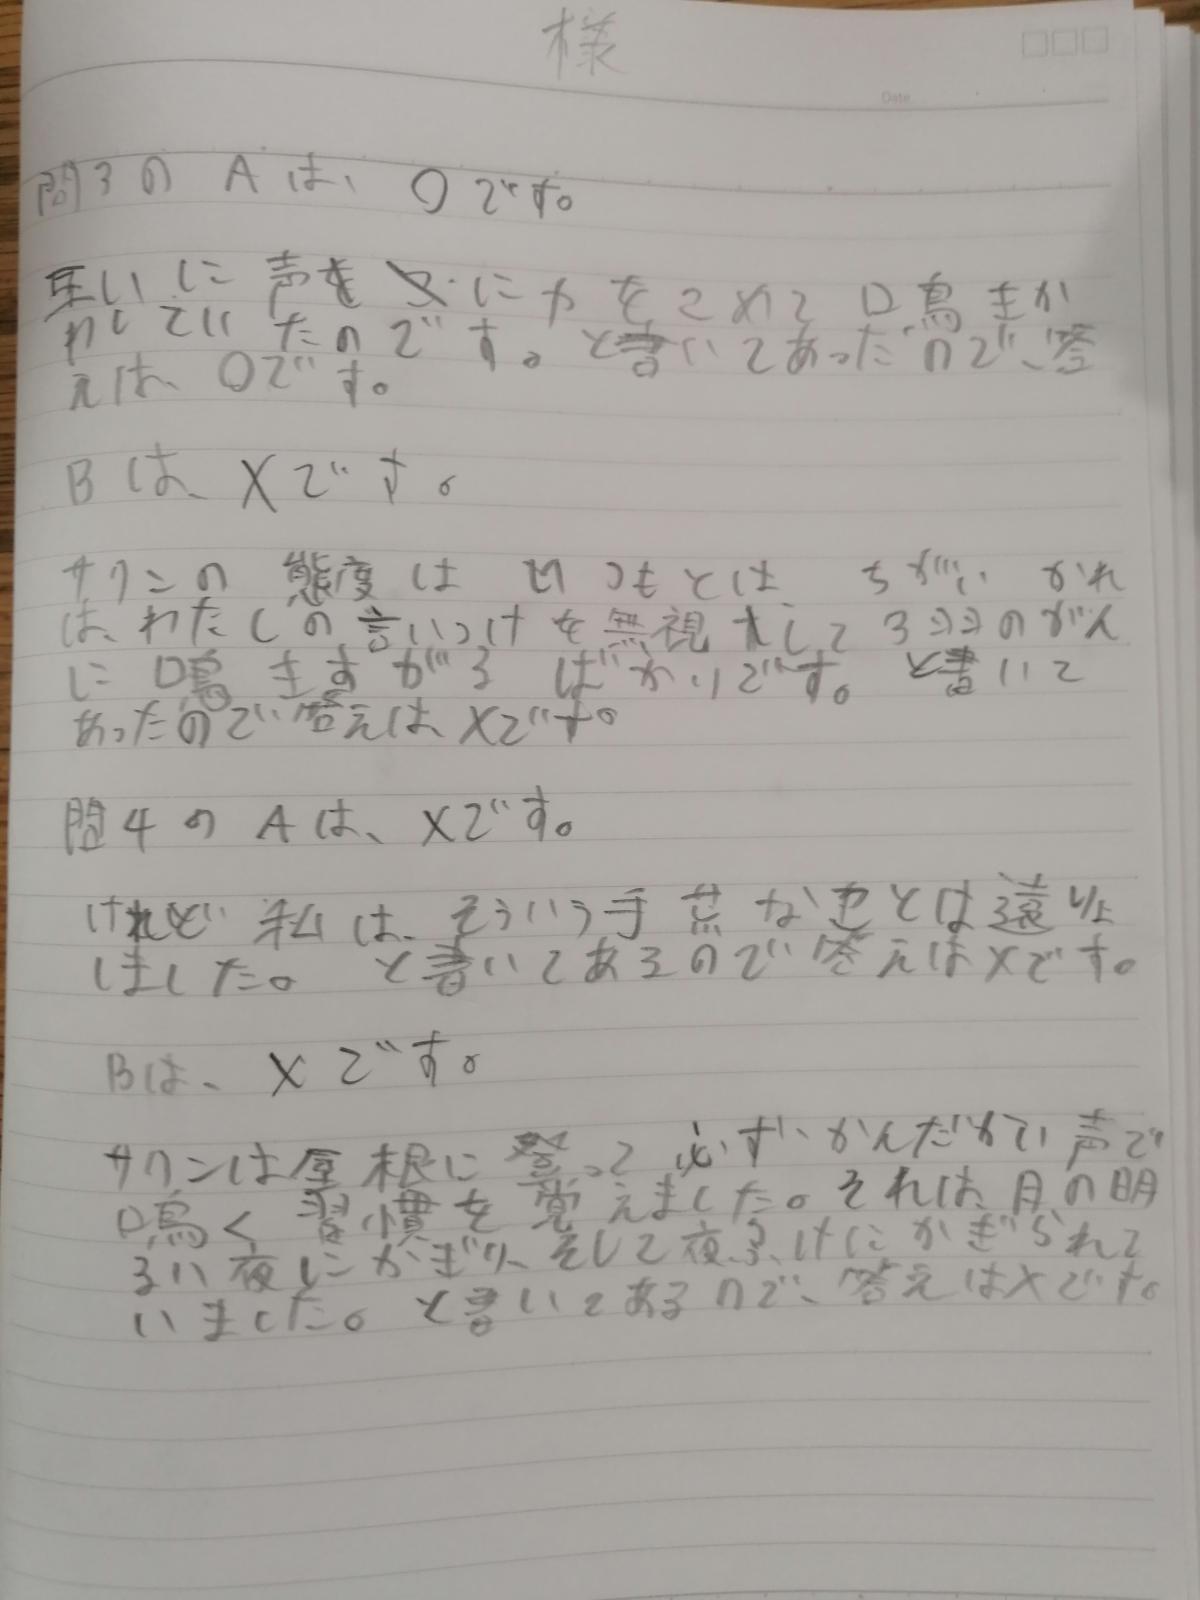 様
Date
問3の Aは、 〇です。
互いに 声を に力をこめて 鳴きか
わしていたのです。と書いてあったので、答
えは、〇です。
Bは、×です。
サクンの 態度は いつもとは、ちがい かれ
は、わたしの言いつけを無視 して 3羽のがん
に 鳴きすがる ばかりです。 と書いて
あったので、答えは、×です。
問4の Aは、×です。
けれど 私は、そういう手荒なことは遠りょ
しました。 と書いてあるので 答えは×です。
Bは、×です。
サクンは屋根に登って 必ず かんだかい 声で
鳴く 習慣を覚えました。それは、月の明
るい夜にかぎり、そして夜ふけにかぎられて
いました。と書いてあるので、答えは×です。